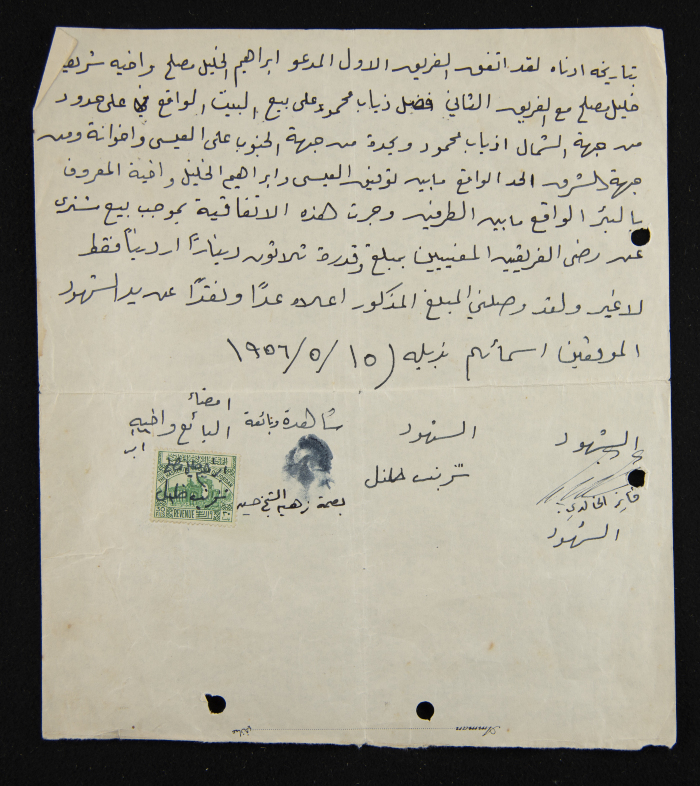 بتاريخه ادناه لقد اتفق الفريق الاول المدعو ابراهيم الخليل مصلح واخيه شريف
خليل مصلح مع الفريق الثاني فضل ذياب محمود على بيع البيت الواقع على حدود
من جهة الشمال اذياب محمود ويحدة من جهة الجنوب على العيسى واخوانة ومن
جهة الشرق الحد الواقع مابين توفيق العيسى وابراهيم الخليل واخية المعروف
بالبئر الواقع مابين الطرفين وجرت هذه الاتفاقية بموجب بيع مشتري
عن رضى الفريقين المعنيين بمبلغ وقدرة ثلاثون دينارًا اردنيًا فقط
لاغير ولقد وصلني المبلغ المذكور اعلاه عدًا ونقدًا عن يد الشهود
الموقعين اسمائهم بذيله (١٥ /٥/ ١٩٥٦
الشهود
الشهود
شاهدة وبائعة
امضاء
البائع واخيه
فايز الخالدي
خليل
بصمة زهية الشيخ حسين
خليل
REVENUE
الشهود
Amman